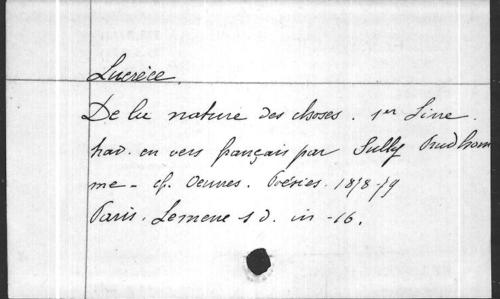 Lucrèce.
De la nature des choses. 1er Livre.
trad. en vers français par Sully Prudhom
me - cf. Oeuvres. Poésies. 1878-79
Paris. Lemerre s d. in -16.